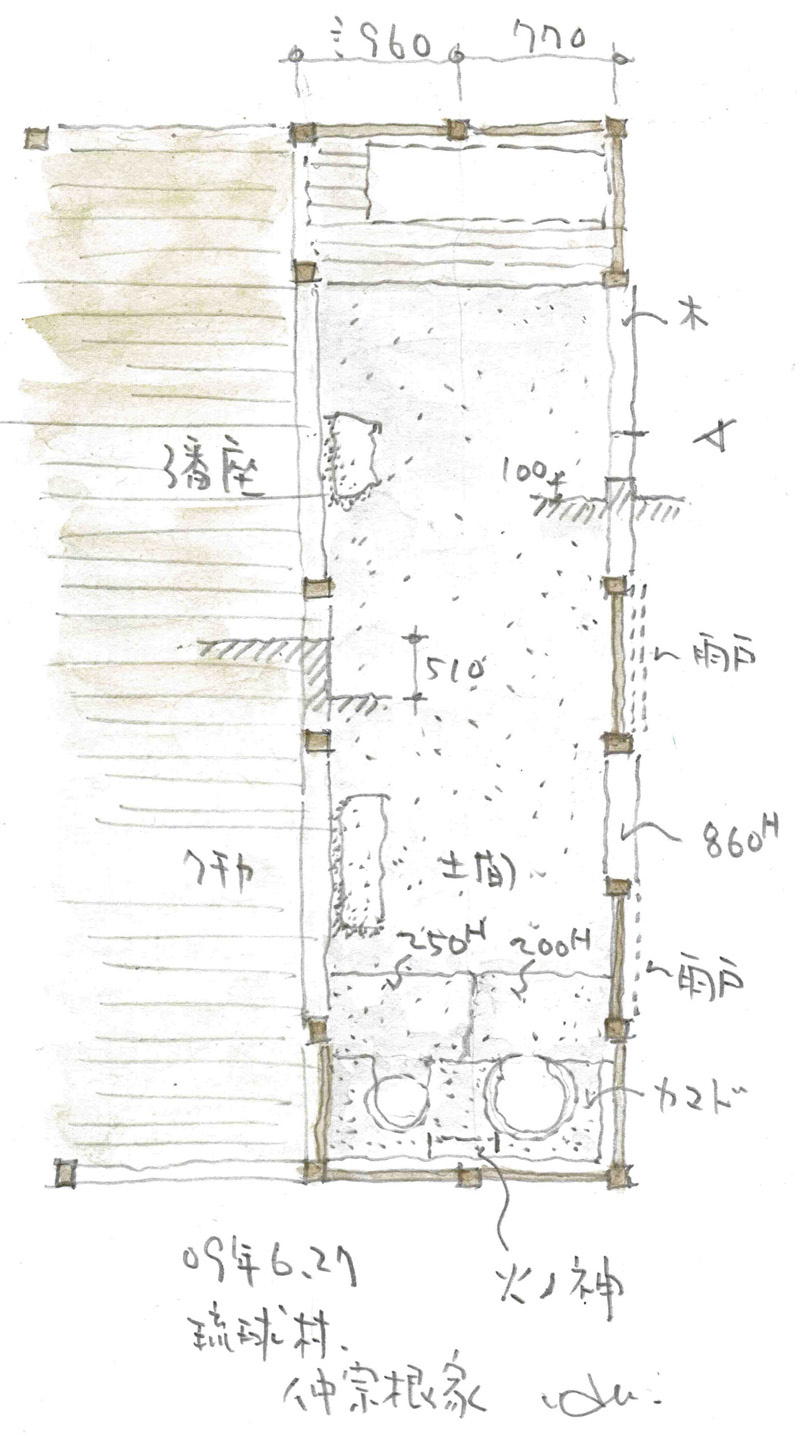 960 770
木
3番座
100
雨戸
510
860H
クチカ
土間
250H 200H
雨戸
カマド
火ノ神
09年6.27
琉球村.
仲宗根家